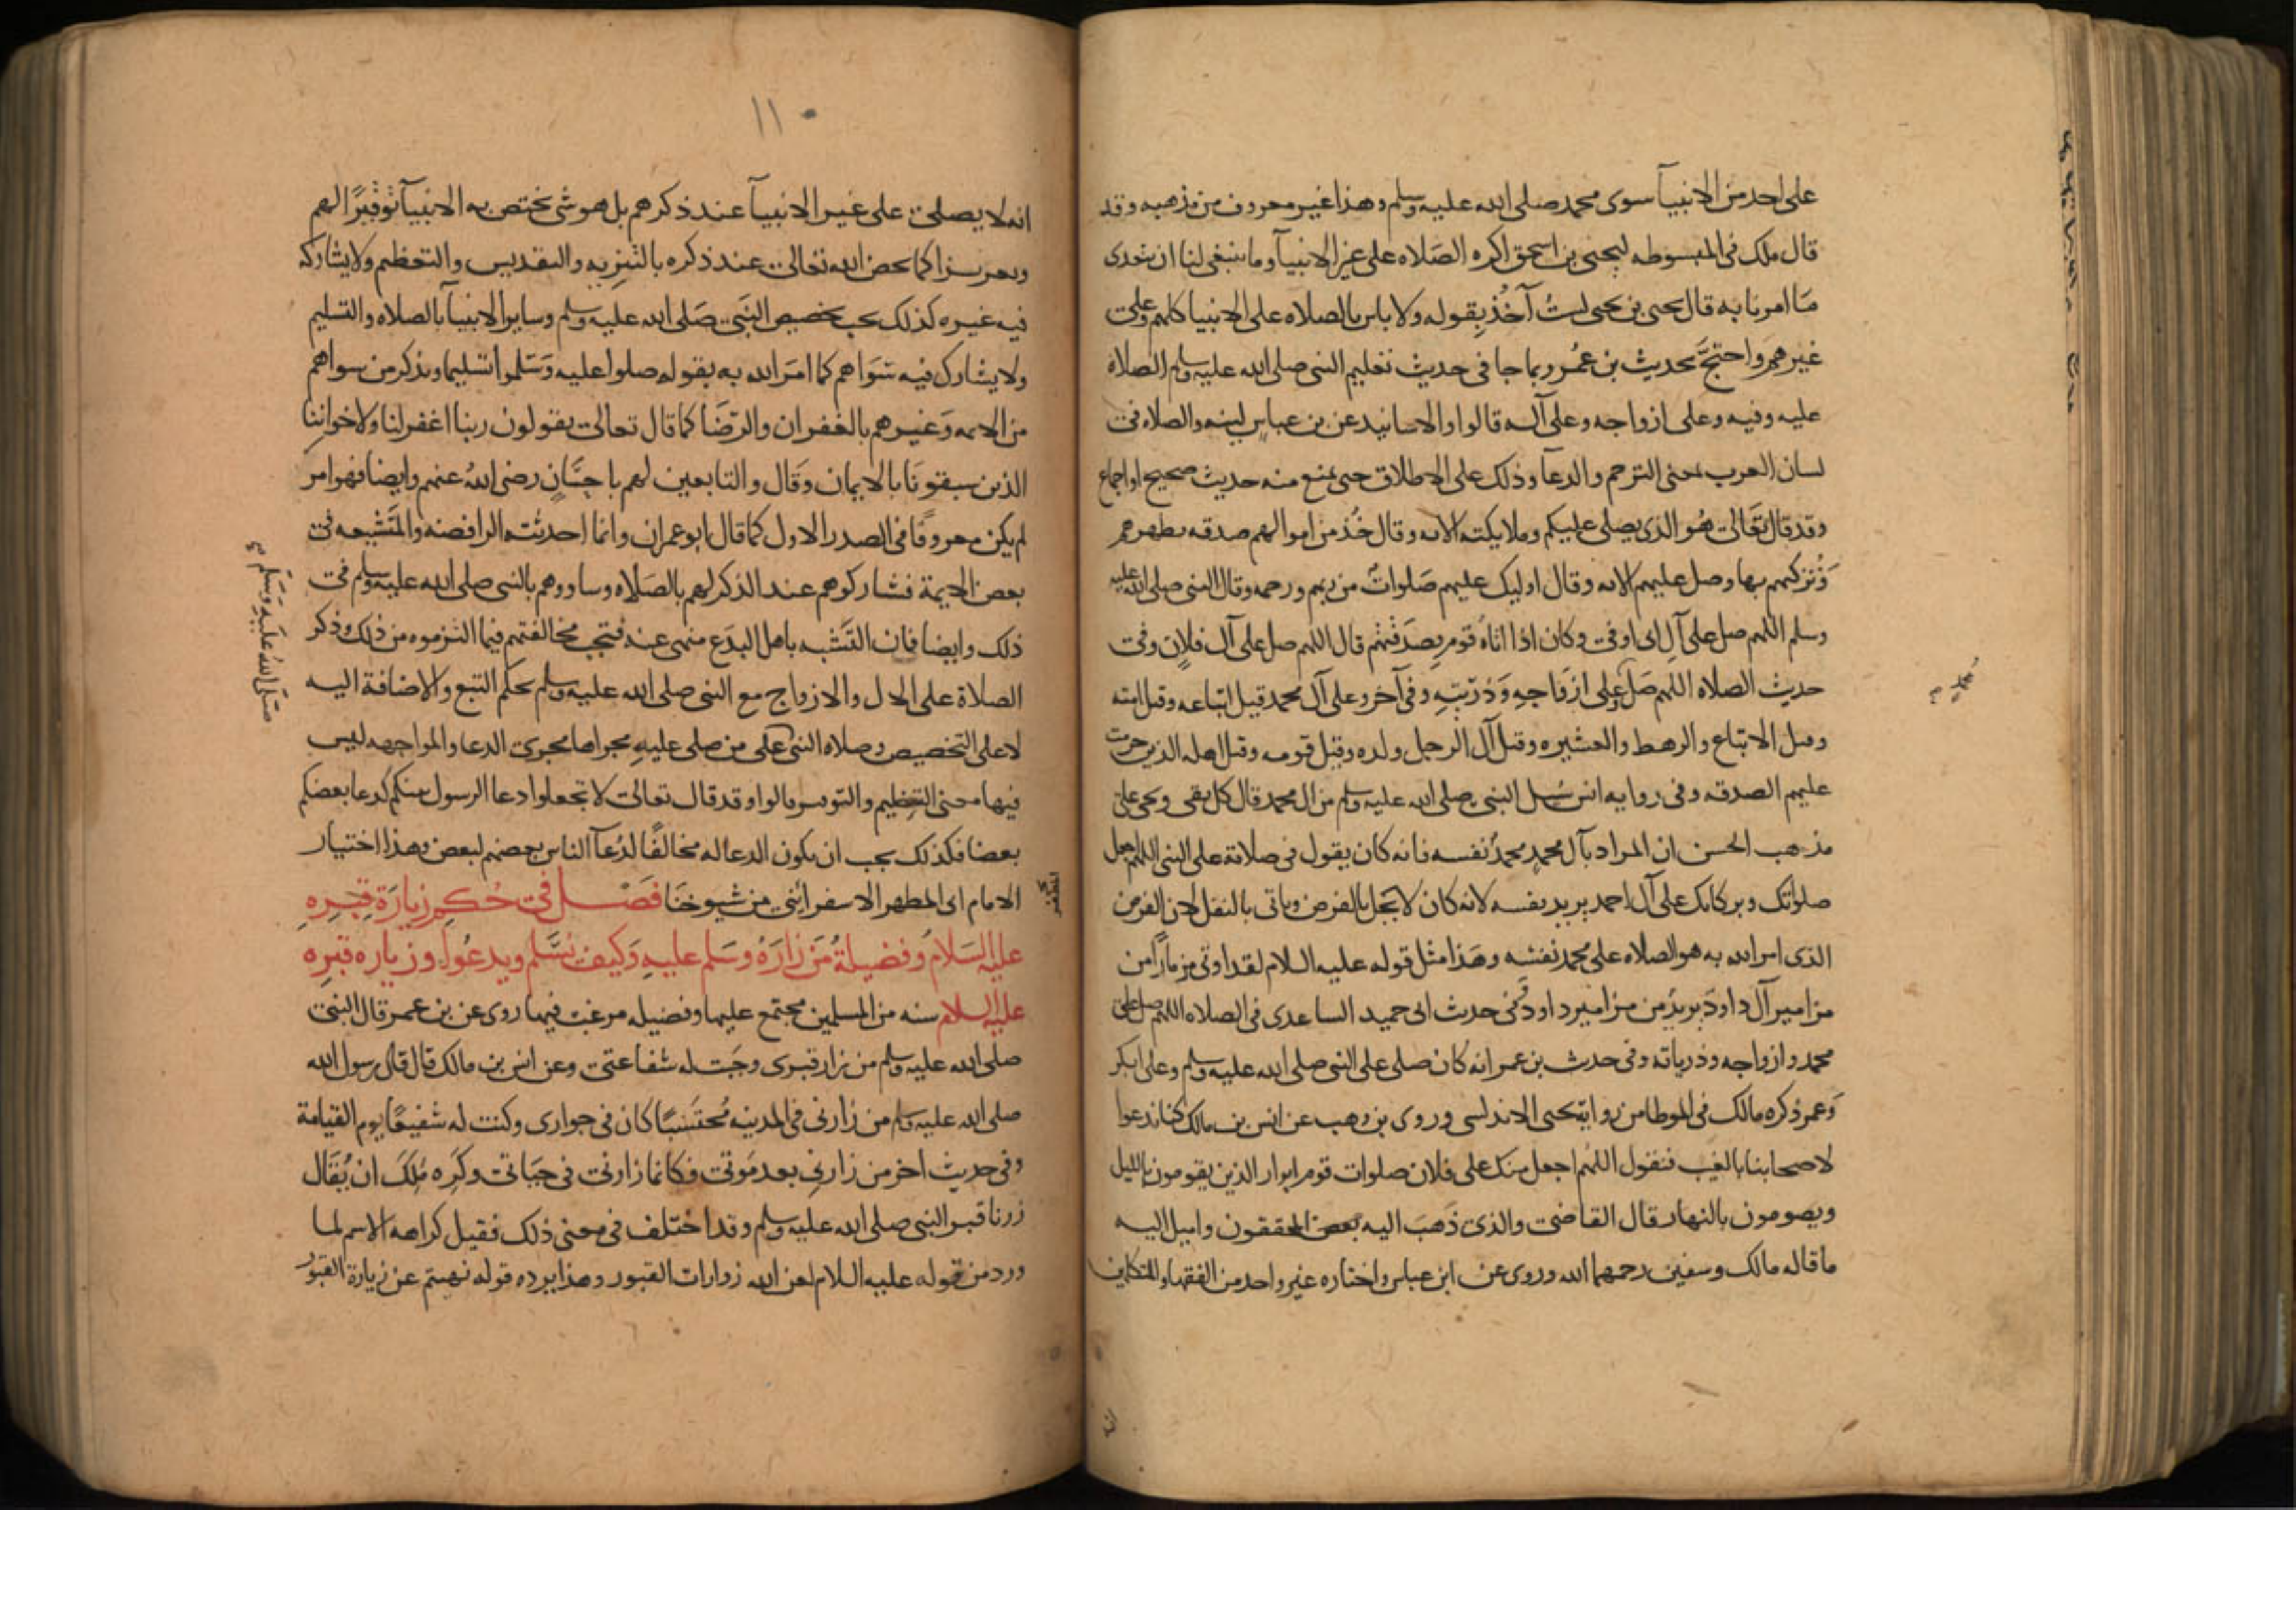 على احد من الانبيآ سوى محمد صلى الله عليه وسلم وهذا غير معروف من مذهبه وقد
قال ملك فى المبسوطه ليحيى بن اسحق اكره الصَلاه على غير الانبيآ وما ينبغى لنا ان نتعدى
مَا امرنا به قال يحيى بن يحيى لستُ آخُذ بقوله ولا باس بالصلاه على الانبيا كلهم وعلى
غيرهم واحتجَّ بحديث بن عمُر وبما جا فى حديث تعليم النبى صلى الله عليه وسلم الصلاة
عليه وفيه وعلى ازواجه وعلى آله قالوا والاسانيد عن بن عباس لينه والصلاه فى
لسان العرب بمعنى الترحم والدعآ وذلك على الاطلاق حتى يمنع منه حديث صحيح او اجماع
وقد قال تَعَالى هُو الذى يصلى عليكم وملايكته الايه وقال خُذ من اموالهم صدقه تطهرهم
وَتُزكيهم بها وصل عليهم الايه وقال اوليك عليهم صَلواتٌ من ربهم ورحمه وقال النبى صلى الله عليه
وسلم اللهم صل على آلِ ابى اوفى وكان اذا اتاهُ قوم بصَدقتهم قال اللهم صل على آل فلانٍ وفى
حديث الصلاه اللهم صَل على ازوَاجهِ وَذُريّتِهِ وفى آخر وعلى آل محمد قيل اتباعه وقيل امته
وقيل الاتباع والرهط والعشيره وقيل آل الرجل ولده وقيل قومه وقيل اهله الذين حرمت
عليهم الصدقه وفى روايه انس سُيل النبى صلى الله عليه وسلم من ال محمد قال كل تقى ويجى على
مذهب الحسن ان المراد بآل محمدٍ محمدٌ نفسه فانه كان يقول فى صلاته على النبى اللهم اجعل
صلواتك وبركاتك على آل احمد يريد نفسه لانه كان لا يخل بالفرض وياتى بالنفل لان الفرض
الذى امر الله به هو الصلاه على محمد نفسه وهَذا مثل قوله عليه السلام لقد اوتى مزمارًا من
مزامير آل داودَ يريدُ من مزامير داودَ وفى حديث ابى حميد الساعدى فى الصلاه اللهم صل على
محمد وازواجه وذرياته وفى حديث بن عمر انه كان صلى على النبى صلى الله عليه وسلم وعلى ابى بكر
وَعمر ذكره مالك فى الموطا من رواية يحيى الاندلسى وروى بن وهب عن انس بن مالك كنا ندعوا
لاصحابنا بالغيب فنقول اللهُم اجعل منك على فلان صلوات قوم ابرار الذين يقومون بالليل
ويصومون بالنهار قال القاضى والذى ذَهبَ اليه بعض المحققون واميل اليه
ما قاله مالك وسفين رحمهما الله وروى عن ابن عباس واختاره غير واحد من الفقها والمتكلمين
محمد
انه لا يصلى على غير الانبيآ عند ذكرهم بل هو شى يختص به الانبيآ تَوْقيرًا لهم
وتعزيزا كما يخص الله تعالى عند ذكره بالتنزيه والتقديس والتعظيم ولا يشاركه
فيه غيره كذلك يجب تخصيص النَبى صَلى الله عليه وسلم وساير الانبيآ بالصلاه والتسليم
ولا يشارك فيه سَوَاهم كما امَر الله به بقوله صلوا عليه وَسَلموا تسليما ويذكر من سواهم
من الايمه وَغيرهم بالغفران والرّضَا كما قال تعالى يقولون ربنا اغفر لنا ولاخواننا
الذين سبقونَا بالايمان وَقال والتابعين لهم باحِسَّانٍ رضى اللهُ عنهم وايضا فهو امر
لم يكن معروفًا فى الصدر الاول كما قال ابو عمران وانما احدثته الرافضه والمتَشيعه فى
بعض الايمة فشاركوهم عند الذكر لهم بالصَلاه وساووهم بالنبى صلى الله عليه وسلم فى
ذلك وايضا فان التَشبه باهل البدَع منهى عنه فتجب مخالفتهم فيما التزموه من ذلك وذكر
الصلاة على الال والازواج مع النبى صلى الله عليه وسلم بحكم التبع والاضافة اليه
لا على التخصيص وصلاه النبى على من صلى عليهِ مجراها مجرى الدعا والمواجهه ليس
فيها معنى التعظيم والتوقير قالوا وقد قال تعالى لا تجعلوا دعا الرسول بينكم كدعا بعضكم
بعضا فكذلك يجب ان يكون الدعا له مخالفًا لدُعآ الناس بعضهم لبعض وهذا اختيار
الامام ابى المظهر الاسفرائنى من شيوخنَا فصَـــل فى حُكم زيارَة قبره
عليه السَلام وفضيلةُ مَن زارَهُ وسَلم عليهِ وَكيف يُسَّلم ويدعُوا وزياره قبره
عليه السلام سنه من المسلمين مجتمع عليها وفضيله مرغب فيها روى عن بن عمر قال النبى
صلى الله عليه وسلم من زار قبرى وجَبت له شفاعتى وعن انس بن مالك قال قال رسول الله
صلى الله عليه وسلم من زارنى فى المدينه مُحتسَبًا كان فى جوارى وكنت له شفيعًا يوم القيامة
وفى حديث اخر من زارنِى بعد مَوتى فكانما زارنى فى حيَاتى وكَرِه مُلكَ ان يُقَال
زرنا قبر النبى صلى الله عليه وسلم وقد اختلف فى معنى ذلك فقيل كراهه الاسم لما
ورد من قوله عليه السلام لعن الله زوارات القبور وهذا يرده قوله نهيتم عن زيارة القبور
صَلّى اللهُ عَليْهِ وَسَلّم
المظفر
١١٠